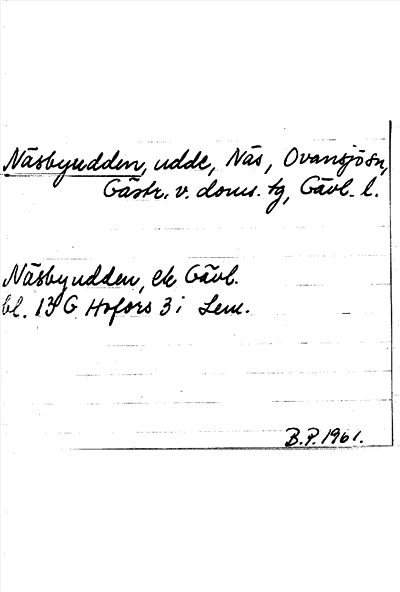 Näsbyudden, udde, Näs, Ovansjö sn,
Gästr. v. doms. tg, Gävl. l.
Näsbyudden, ek Gävl.
bl. 13 G Hofors 3 i Lem.
B.P. 1961.